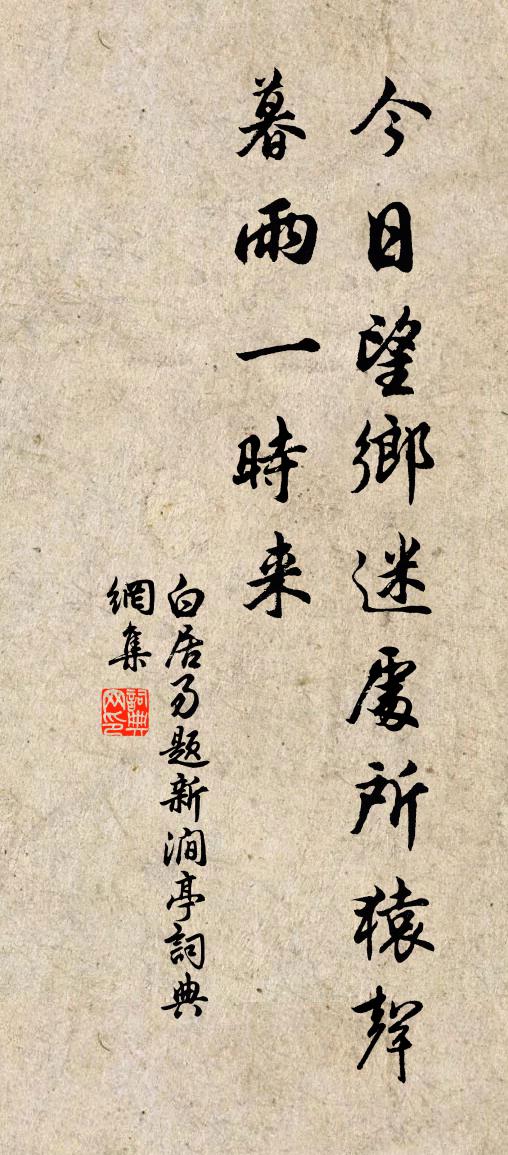 今日望鄉迷處所猿聲
暮雨一時来
白居易題新澗亭詞典
網集
詞典
网印